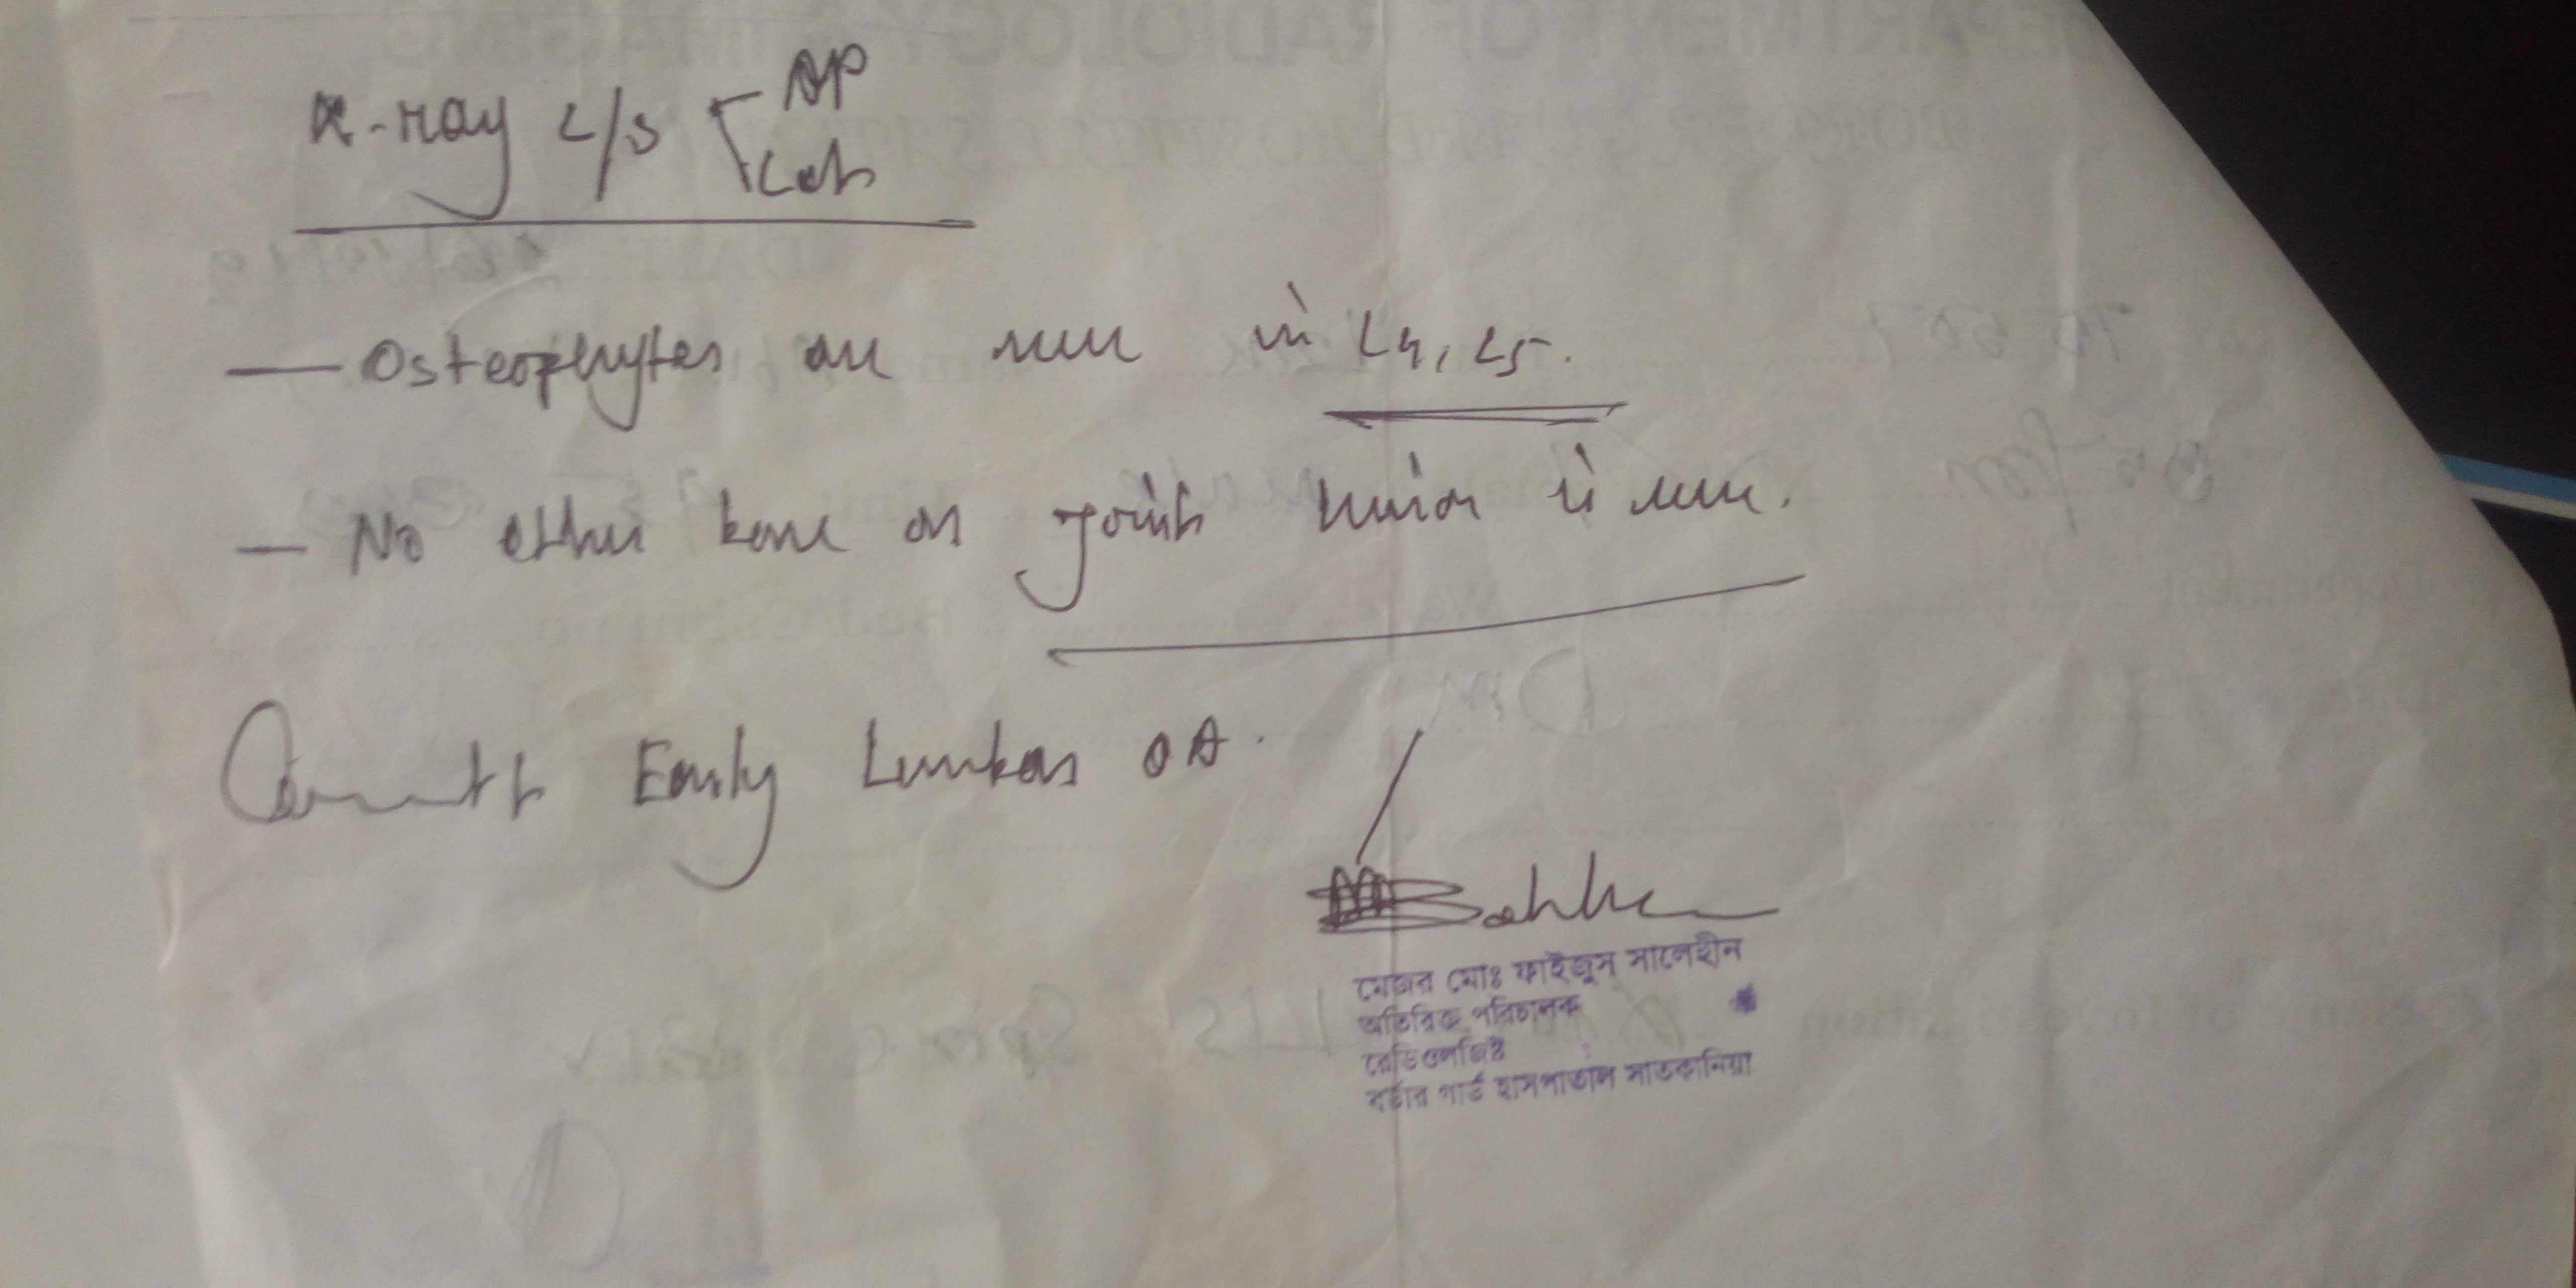 X-ray L/S AP
Lat
— Osteophytes are seen in L4, L5.
— No other bone or joint lesion is seen.
Comment: Early Lumbar OA.
মেজর মোঃ ফাইজুস্ সালেহীন
অতিরিক্ত পরিচালক
রেডিওলজিষ্ট
বর্ডার গার্ড হাসপাতাল সাতকানিয়া